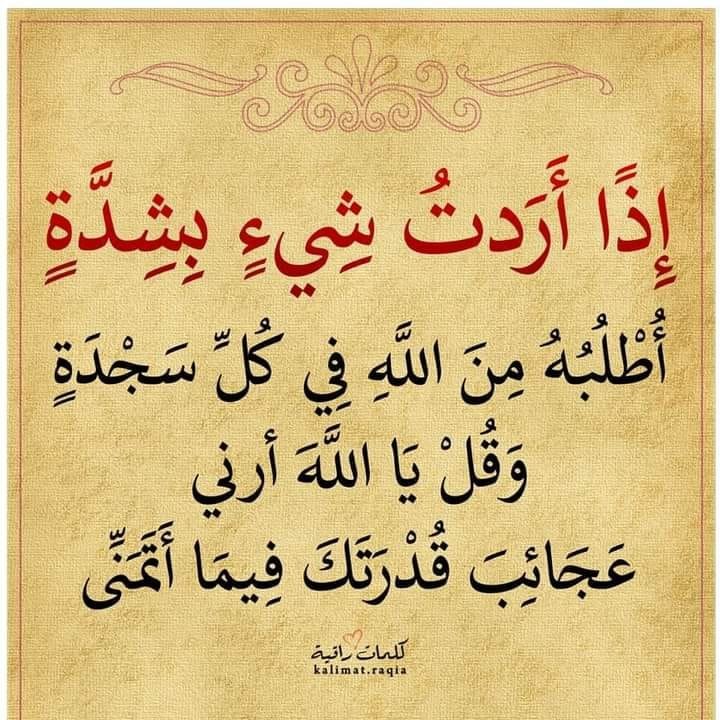 إِذًا أَرَدتُ شِيءٍ بِشِدَّةٍ
أُطْلُبُهُ مِنَ اللَّهِ فِي كُلِّ سَجْدَةٍ
وَقُلْ يَا اللَّهَ أرني
عَجَائِبَ قُدْرَتَكَ فِيمَا أَتَمَنِّى
كلمات راقية
kalimat.raqia